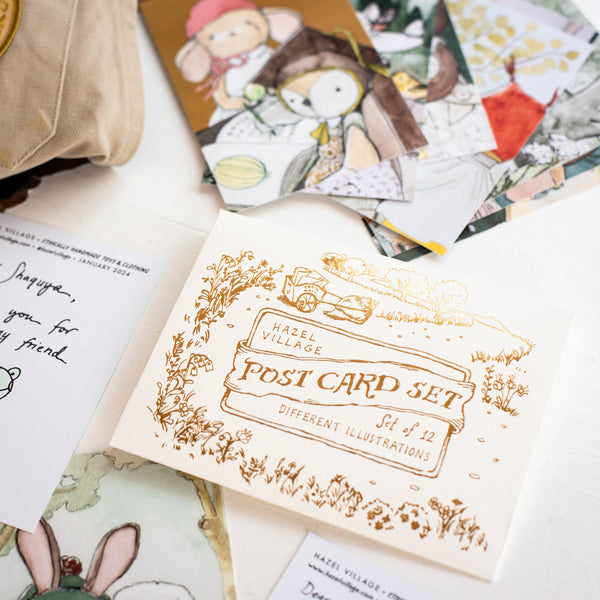 HAZEL
VILLAGE
POST CARD SET
Set of 12
DIFFERENT ILLUSTRATIONS
L VILLAGE • ETHICALLY HANDMADE TOYS & CLOTHING
JANUARY 2024
Shaquya,
you for
my friend
HAZEL VILLAGE •
www.hazelvillage.com
Dear